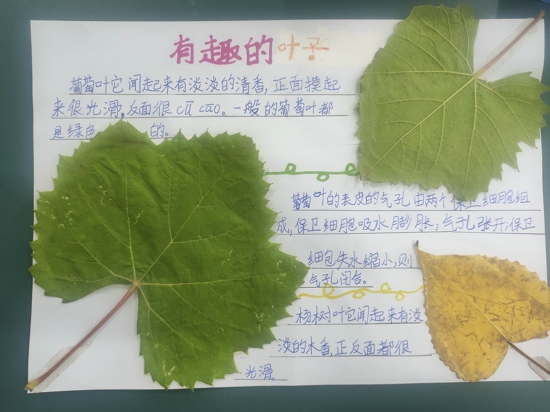 有趣的叶子
葡萄叶它闻起来有淡淡的清香,正面摸起
来很光滑,反面很 cū cāo。一般的葡萄叶都
是绿色 的。
葡萄叶的表皮的气孔由两个保卫细胞组
成,保卫细胞吸水膨胀,气孔张开,保卫
细包失水缩小,则
气孔闭合。
杨树叶它闻起来有淡
淡的木香,正反面都很
光滑